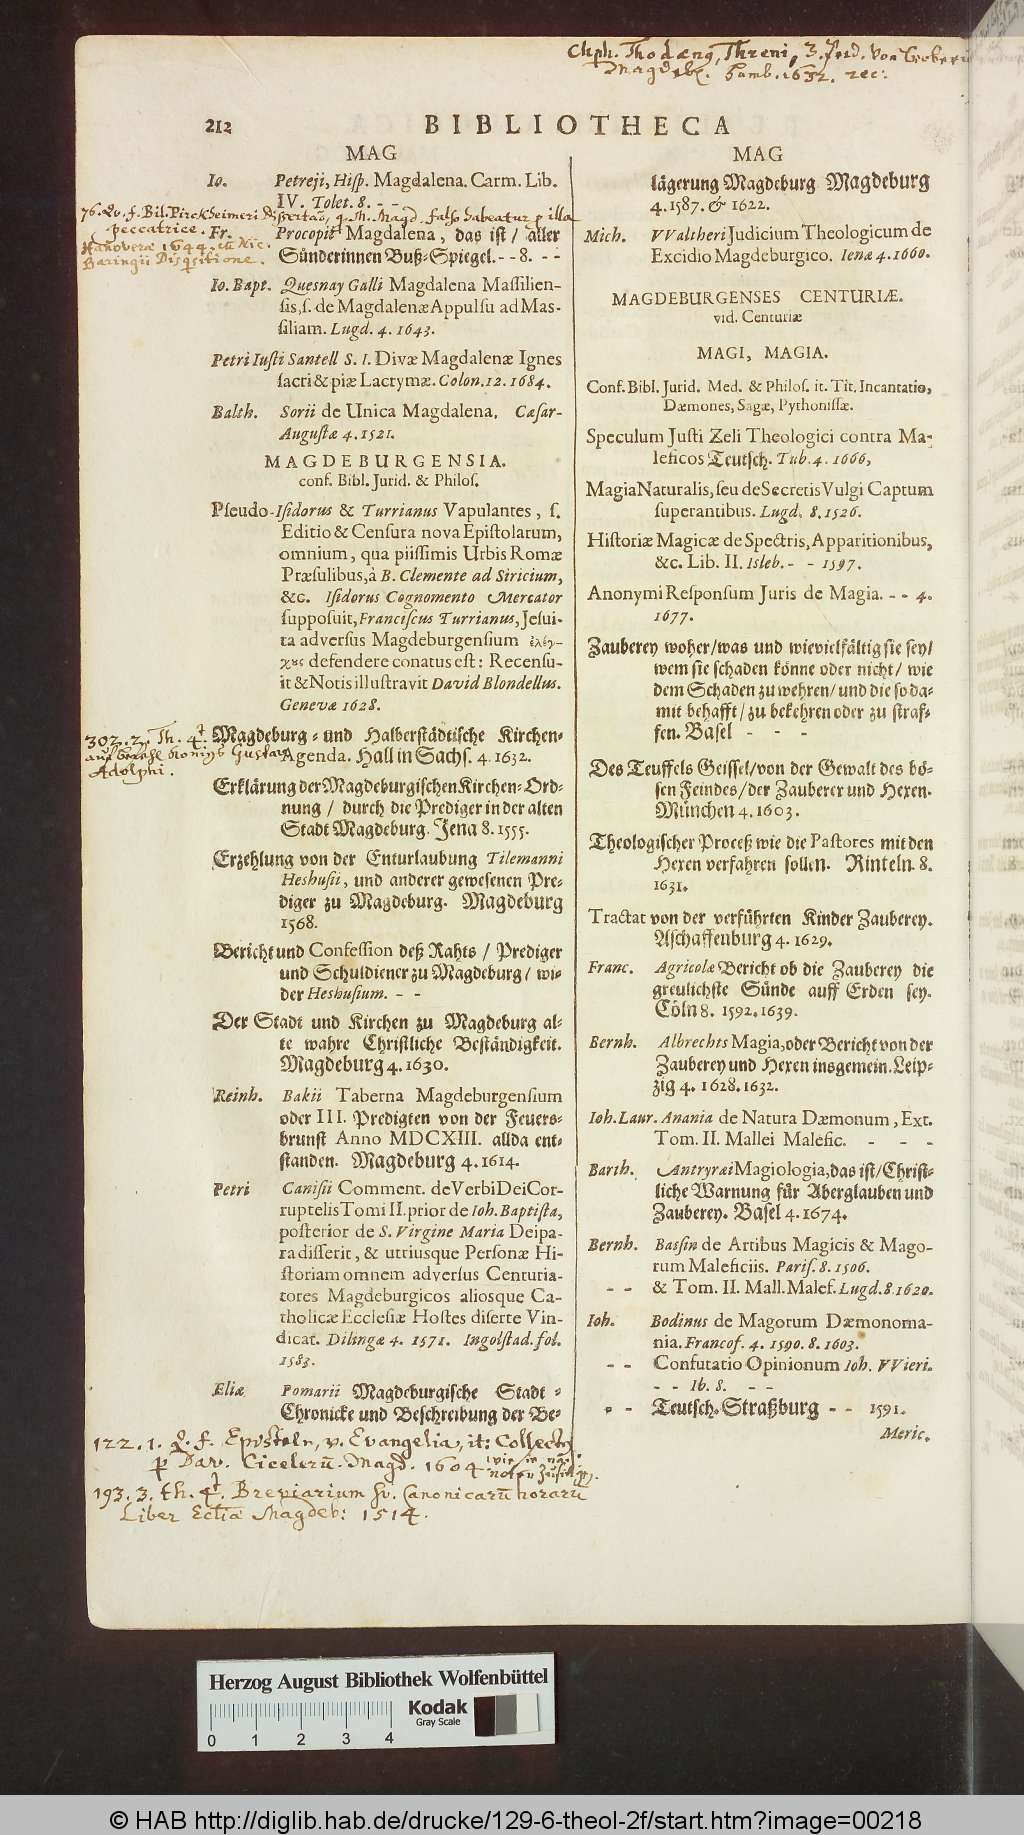 Chph. Thodæng, Threni,
Magdeb. Hamb. 1632. rec:
212 BIBLIOTHECA
MAG
Io. Petreji, Hisp. Magdalena. Carm. Lib.
IV. Tolet. 8. - -
76. Qv. f. Bil. Pirckheimeri Dissertatio, q. Th. Magd. falso habeatur p illa
peccatrice.
Hanoveræ 1644. cū Nic.
Baringii Disqvisitione.
Fr. Procopii Magdalena, das ist / aller
Sünderinnen Buß-Spiegel. - - 8. - -
Io. Bapt. Quesnay Galli Magdalena Massilien-
sis, s. de Magdalenæ Appulsu ad Mas-
siliam. Lugd. 4. 1643.
Petri Iusti Santell S. I. Divæ Magdalenæ Ignes
sacri & piæ Lacrymæ. Colon. 12. 1684.
Balth. Sorii de Unica Magdalena. Cæsar-
Augustæ 4. 1521.
MAGDEBURGENSIA.
conf. Bibl. Jurid. & Philos.
Pseudo-Isidorus & Turrianus Vapulantes, s.
Editio & Censura nova Epistolarum,
omnium, qua piissimis Urbis Romæ
Præsulibus, à B. Clemente ad Siricium,
&c. Isidorus Cognomento Mercator
supposuit, Franciscus Turrianus, Jesui-
ta adversus Magdeburgensium ἐλέγ-
χυς defendere conatus est: Recensu-
it & Notis illustravit David Blondellus.
Genevæ 1628.
302. 2. Th. 4t.
auf befehl Königs Gustav
Adolphi.
Magdeburg- und Halberstädtische Kirchen-
Agenda. Hall in Sachs. 4. 1632.
Erklärung der Magdeburgischen Kirchen-Ord-
nung / durch die Prediger in der alten
Stadt Magdeburg. Jena 8. 1555.
Erzehlung von der Enturlaubung Tilemanni
Heshusii, und anderer gewesenen Pre-
diger zu Magdeburg. Magdeburg
1568.
Bericht und Confession deß Rahts / Prediger
und Schuldiener zu Magdeburg / wi-
der Heshusium. - -
Der Stadt und Kirchen zu Magdeburg al-
te wahre Christliche Beständigkeit.
Magdeburg 4. 1630.
Reinh. Bakii Taberna Magdeburgensium
oder III. Predigten von der Feuers-
brunst Anno MDCXIII. allda ent-
standen. Magdeburg 4. 1614.
Petri Canisii Comment. de Verbi Dei Cor-
ruptelis Tomi II. prior de Ioh. Baptista,
posterior de S. Virgine Maria Deipa-
ra disserit, & utriusque Personæ Hi-
storiam omnem adversus Centuria-
tores Magdeburgicos aliosque Ca-
tholicæ Ecclesiæ Hostes diserte Vin-
dicat. Dilingæ 4. 1571. Ingolstad. fol.
1583.
Eliæ Pomarii Magdeburgische Stadt-
Chronicke und Beschreibung der Be-
122. 1. Q. f. Episteln, v. Evangelia, it: Collecten
p Dav. Cicelerū. Magd. 1604
193. 3. th. 4t. Breviarium sv. Canonicarū horarū
Liber Ecclīæ Magdeb: 1514.
MAG
lägerung Magdeburg Magdeburg
4. 1587. & 1622.
Mich. VValtheri Judicium Theologicum de
Excidio Magdeburgico. Ienæ 4. 1660.
MAGDEBURGENSES CENTURIÆ.
vid. Centuriæ
MAGI, MAGIA.
Conf. Bibl. Jurid. Med. & Philos. it. Tit. Incantatio,
Dæmones, Sagæ, Pythonissæ.
Speculum Justi Zeli Theologici contra Ma-
leficos Teutsch. Tub. 4. 1666,
Magia Naturalis, seu de Secretis Vulgi Captum
superantibus. Lugd. 8. 1526.
Historiæ Magicæ de Spectris, Apparitionibus,
&c. Lib. II. Isleb. - - 1597.
Anonymi Responsum Juris de Magia. - - 4.
1677.
Zauberey woher / was und wievielfältig sie sey /
wem sie schaden könne oder nicht / wie
dem Schaden zu wehren / und die so da-
mit behafft / zu bekehren oder zu straf-
fen. Basel - - -
Des Teuffels Geissel / von der Gewalt des bö-
sen Feindes / der Zauberer und Hexen.
München 4. 1603.
Theologischer Proceß wie die Pastores mit den
Hexen verfahren sollen. Rinteln. 8.
1631.
Tractat von der verführten Kinder Zauberey.
Aschaffenburg 4. 1629.
Franc. Agricolæ Bericht ob die Zauberey die
greulichste Sünde auff Erden sey.
Cöln 8. 1592. 1639.
Bernh. Albrechts Magia, oder Bericht von der
Zauberey und Hexen insgemein. Leip-
zig 4. 1628. 1632.
Ioh. Laur. Anania de Natura Dæmonum, Ext.
Tom. II. Mallei Malefic. - - -
Barth. Antryræi Magiologia, das ist / Christ-
liche Warnung für Aberglauben und
Zauberey. Basel 4. 1674.
Bernh. Bassin de Artibus Magicis & Mago-
rum Maleficiis. Paris. 8. 1506.
- - & Tom. II. Mall. Malef. Lugd. 8. 1620.
Ioh. Bodinus de Magorum Dæmonoma-
nia. Francof. 4. 1590. 8. 1603.
- - Confutatio Opinionum Ioh. VVieri.
- - Ib. 8. - -
- - Teutsch. Straßburg - - 1591.
Meric.
Herzog August Bibliothek Wolfenbüttel
Kodak
Gray Scale
0 1 2 3 4
© HAB http://diglib.hab.de/drucke/129-6-theol-2f/start.htm?image=00218